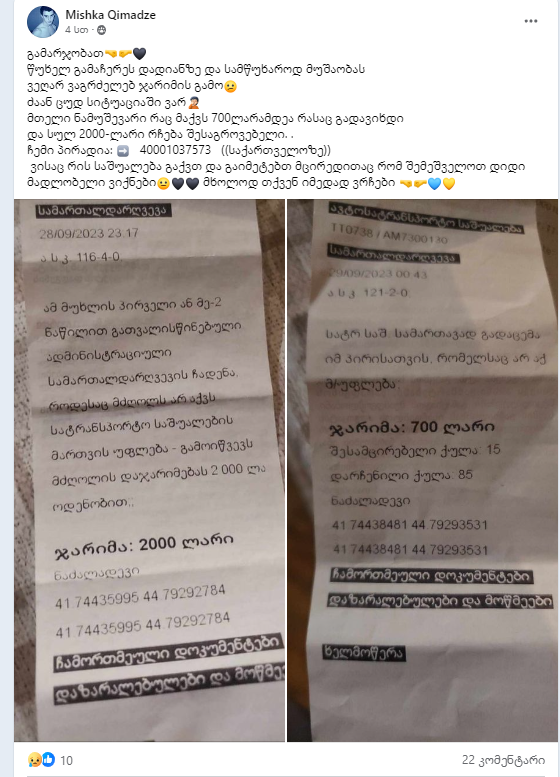 Mishka Qimadze
4 სთ ·
გამარჯობათ🤜🤛🖤
წუხელ გამაჩერეს დადიანზე და სამწუხაროდ მუშაობას
ვეღარ ვაგრძელებ ჯარიმის გამო😥
ძაან ცუდ სიტუაციაში ვარ🤦
მთელი ნამუშევარი რაც მაქვს 700ლარამდეა რასაც გადავიხდი
და სულ 2000-ლარი რჩება შესაგროვებელი. .
ჩემი პირადია: ➡️ 40001037573 ((საქართველოზე))
ვისაც რის საშუალება გაქვთ და გაიმეტებთ მცირედითაც რომ შემეშველოთ დიდი
მადლობელი ვიქნები😥🖤🖤 მხოლოდ თქვენ იმედად ვრჩები 🤜🤛💙💛
სამართალდარღვევა
28/09/2023 23:17
ა.ს.კ. 116-4-0.
ამ მუხლის პირველი ან მე-2
ნაწილით გათვალისწინებული
ადმინისტრაციული
სამართალდარღვევის ჩადენა,
როდესაც მძღოლს არ აქვს
სატრანსპორტო საშუალების
მართვის უფლება - გამოიწვევს
მძღოლის დაჯარიმებას 2 000 ლა
ოდენობით;.
ჯარიმა: 2000 ლარი
ნაძალადევი
41.74435995 44.79292784
41.74435995 44.79292784
ჩამორთმეული დოკუმენტები
დაზარალებულები და მოწმეე
ავტოსატრანსპორტო საშუალება
TT0738 / AM7300130
სამართალდარღვევა
29/09/2023 00:43
ა.ს.კ. 121-2-0.
სატრ.საშ. სამართავად გადაცემა
იმ პირისათვის, რომელსაც არ აქ
მ/უფლება;
ჯარიმა: 700 ლარი
შესამცირებელი ქულა: 15
დარჩენილი ქულა: 85
ნაძალადევი
41.74438481 44.79293531
41.74438481 44.79293531
ჩამორთმეული დოკუმენტები
დაზარალებულები და მოწმეები
ხელმოწერა
10
22 კომენტარი